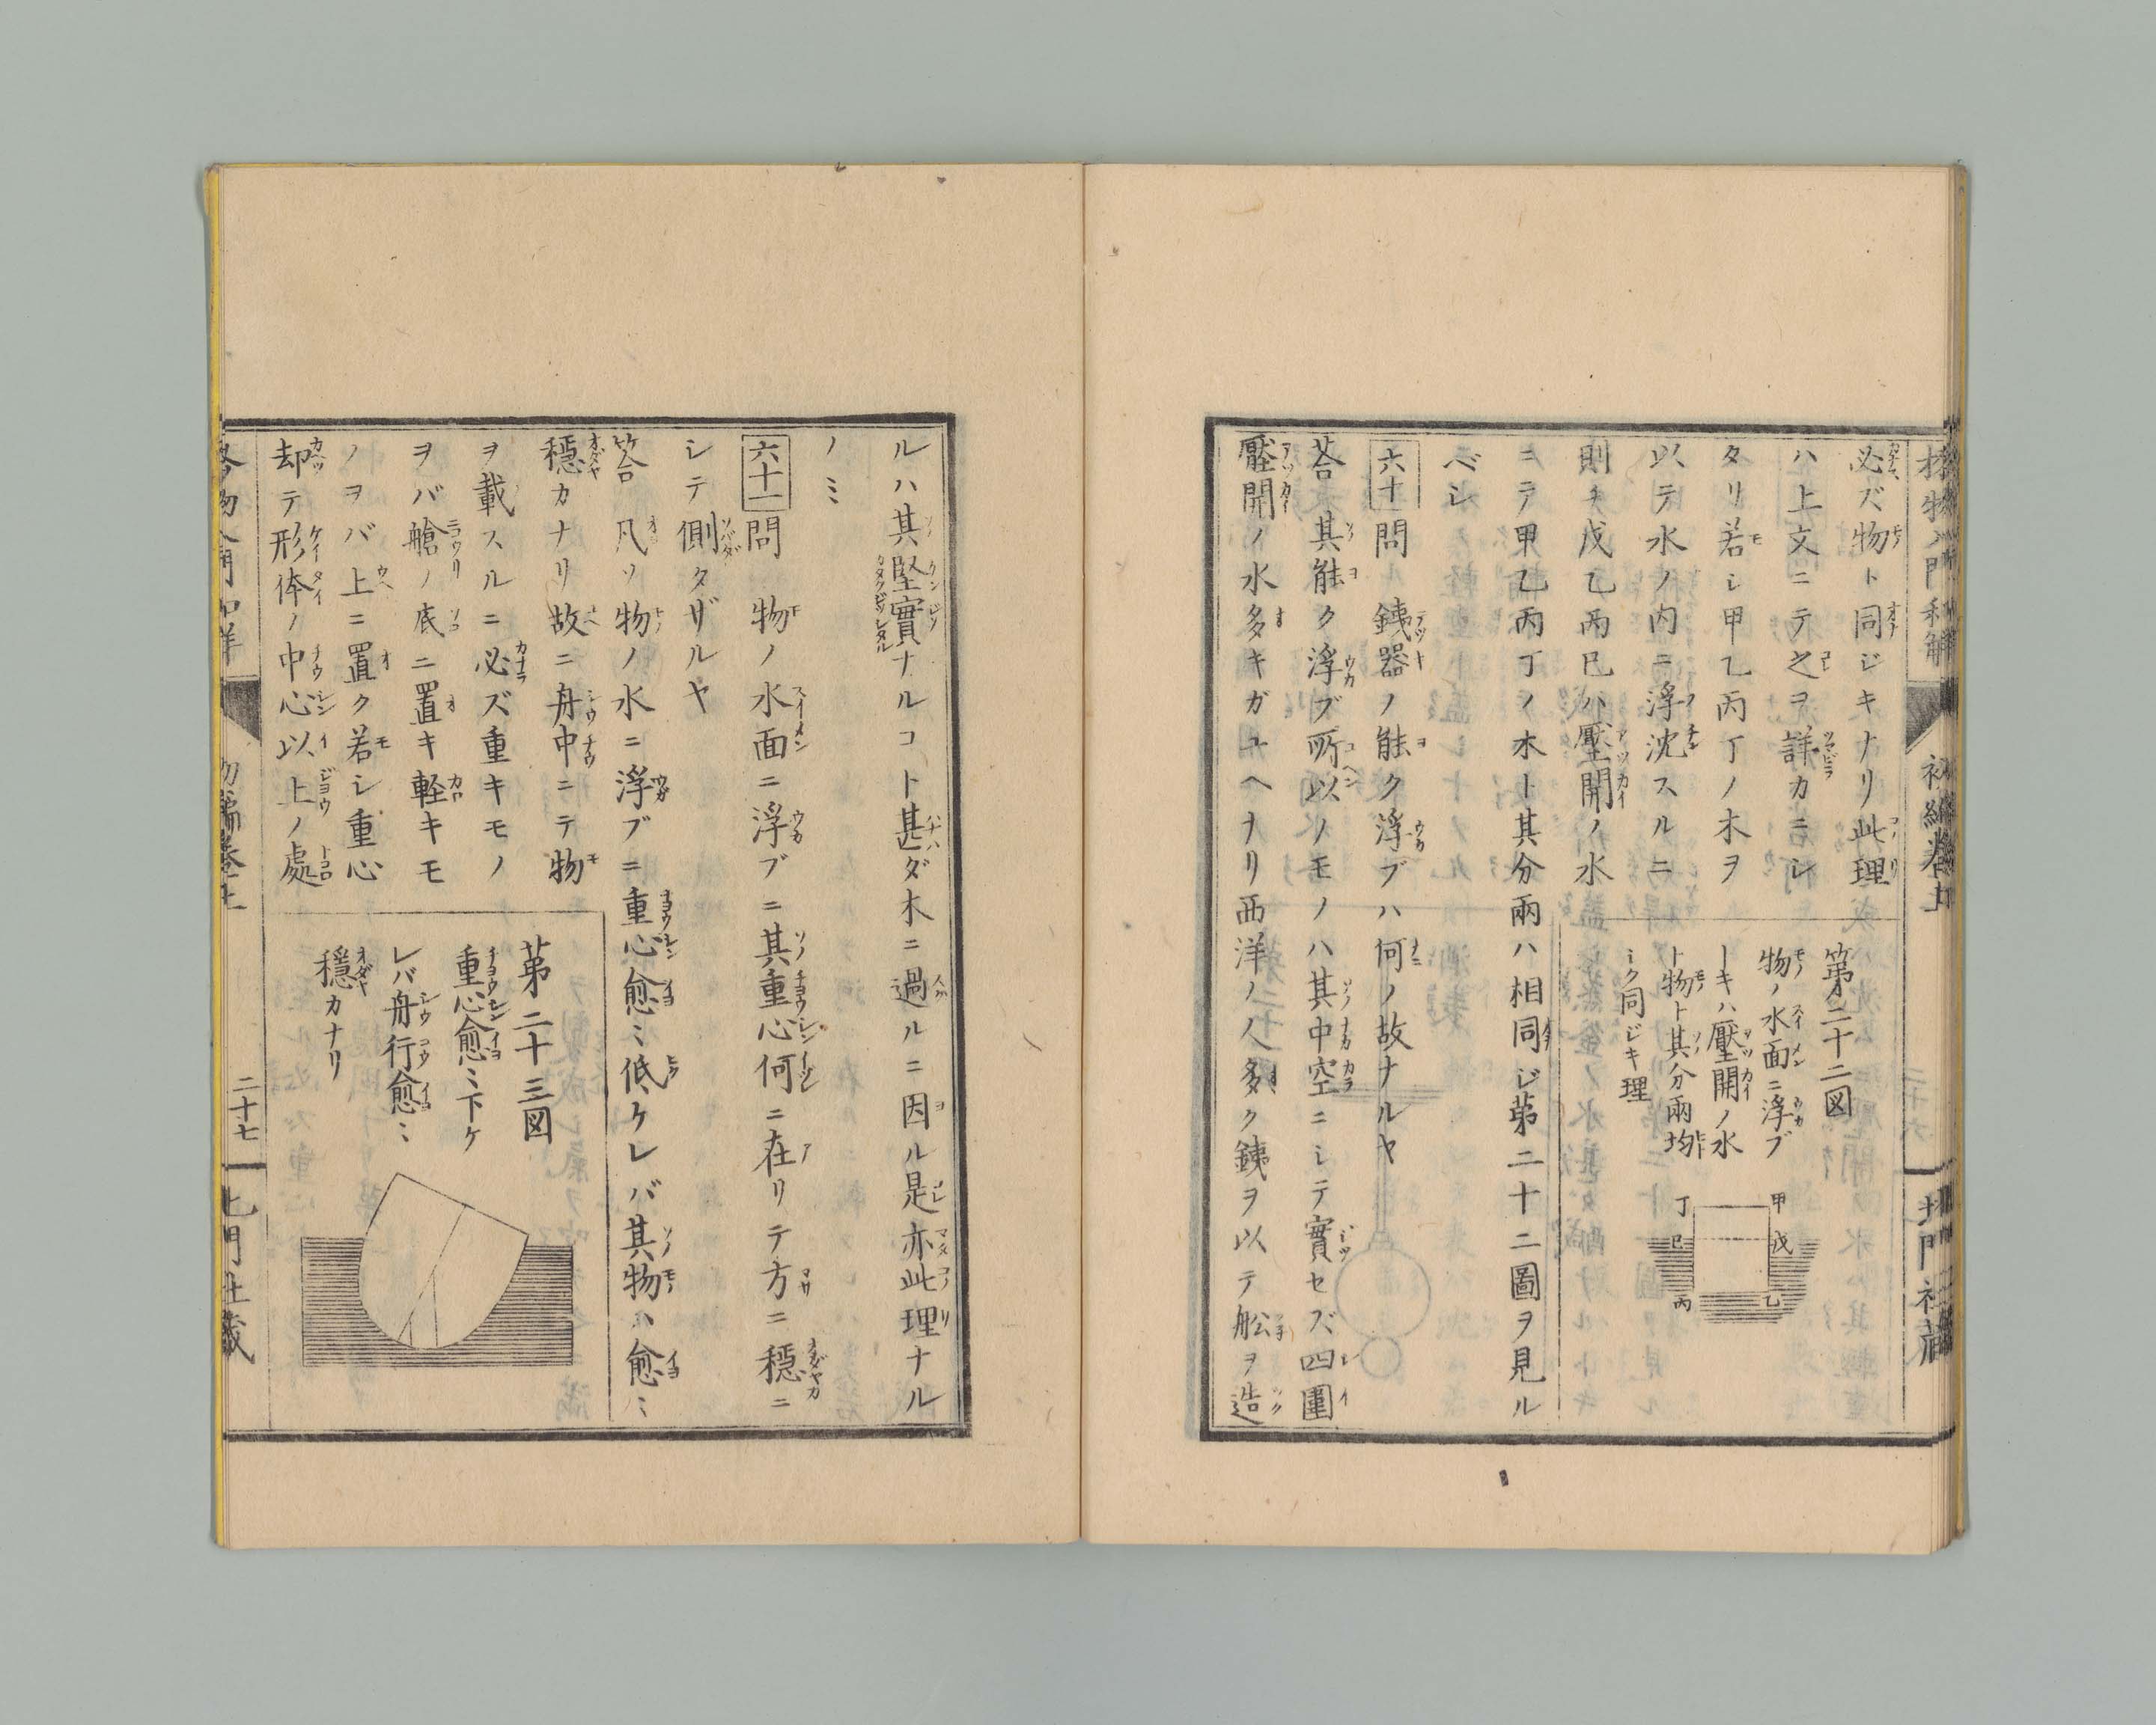 必ズ物ト同ジキナリ此理
ハ上文ニテ之ヲ詳カニシ
タリ若シ甲乙丙丁ノ木ヲ
以テ水ノ内ニ浮沈スルニ
則チ戊乙丙巳ハ壓開ノ水
第二十二図
物ノ水面ニ浮ブ
トキハ壓開ノ水
ト物ト其分兩均
シク同ジキ理
甲
戊
乙
丙
巳
丁
ニテ甲乙丙丁ノ木ト其分兩ハ相同ジ第二十二圖ヲ見ル
ベシ
六十 問 銕器ノ能ク浮ブハ何ノ故ナルヤ
荅 其能ク浮ブ所以ノモノハ其中空ニシテ實セズ四圍
壓開ノ水多キガユヘナリ西洋ノ人多ク銕ヲ以テ舩ヲ造
ルハ其堅實ナルコト甚ダ木ニ過ルニ因ル是亦此理ナル
ノミ
六十一 問 物ノ水面ニ浮ブニ其重心何ニ在リテ方ニ穏ニ
シテ側タザルヤ
答 凡ソ物ノ水ニ浮ブニ重心愈ミ低ケレバ其物ハ愈ミ
穩カナリ故ニ舟中ニテ物
ヲ載スルニ必ズ重キモノ
ヲバ艙ノ底ニ置キ軽キモ
ノヲバ上ニ置ク若シ重心
却テ形体ノ中心以上ノ處
第二十三図
重心愈ミ下ケ
レバ舟行愈ミ
穩カナリ
二十七